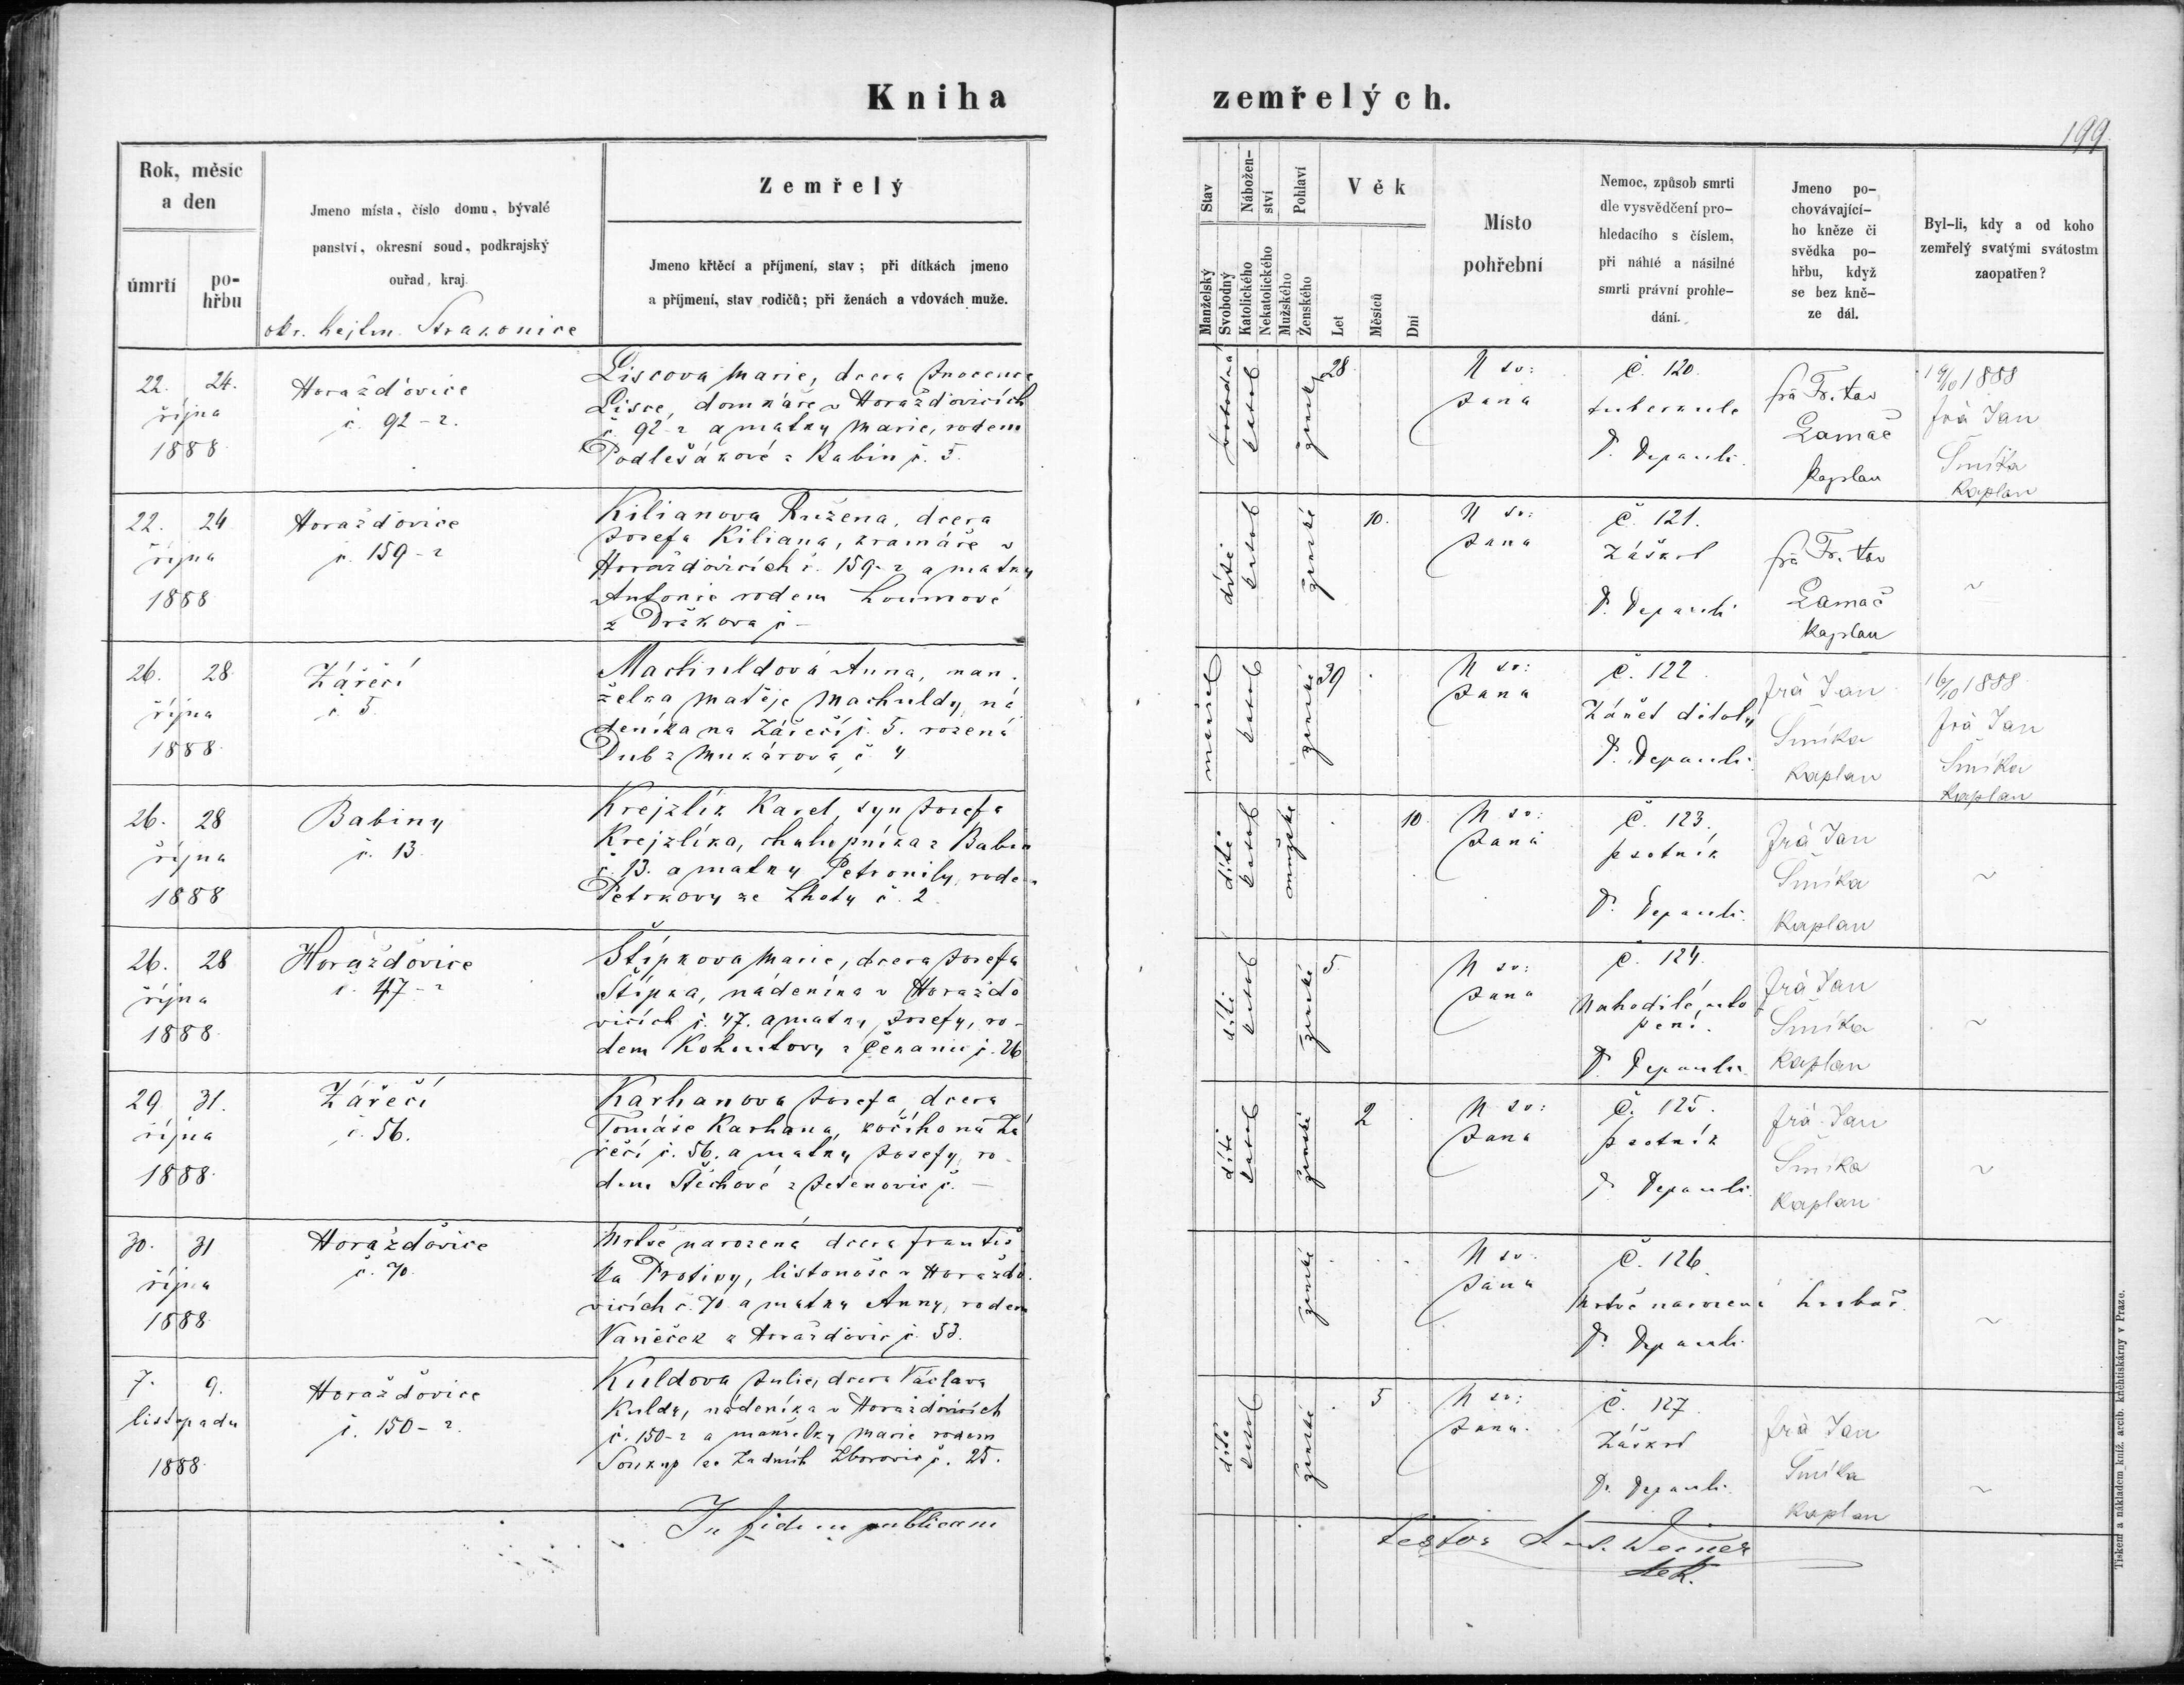 Kniha
zemřelých.
199
Rok, měsíc
a den
úmrtí
po-
hřbu
Jmeno místa, číslo domu, bývalé
panství, okresní soud, podkrajský
ouřad, kraj.
okr. hejtm. Strakonice
Zemřelý
Jmeno křtěcí a příjmení, stav; při dítkách jmeno
a příjmení, stav rodičů; při ženách a vdovách muže.
Stav
Manželský
Svobodný
Nábožen-
ství
Katolického
Nekatolického
Pohlaví
Mužského
Ženského
Věk
Let
Měsíců
Dní
Místo
pohřební
Nemoc, způsob smrti
dle vysvědčení pro-
hledacího s číslem,
při náhlé a násilné
smrti právní prohle-
dání.
Jmeno po-
chovávající-
ho kněze či
svědka po-
hřbu, když
se bez kně-
ze dál.
Byl-li, kdy a od koho
zemřelý svatými svátostmi
zaopatřen?
22. 24.
října
1888
Horažďovice
č. 92-2.
Liscova Marie, dcera Inocence
Lisce, domkáře v Horažďovicích
č. 92-2 a matky Marie, rodem
Podlešákové z Babin č. 5.
svobodná
katol
ženské
28
U sv:
Jana
č. 120.
tuberkule
D. Depauli.
frà Fr. Xav
Lamač
kaplan
19/10 1888
frà Jan
Šmíka
Kaplan
22. 24
října
1888
Horažďovice
č. 159-2
Kilianova Ružena, dcera
Josefa Kiliana, kramáře v
Horažďovicích č. 159-2 a matky
Antonie rodem Loumové
z Držkova č -
dítě
katol
ženské
10.
U sv:
Jana
č. 121.
Záškrt
D. Depauli
frà Fr. Xav
Lamač
kaplan
~
26. 28
října
1888
Zářečí
č. 5
Machuldová Anna, man-
želka Matěje Machuldy, ná
deníka na Zářečí č. 5. rozená
Dub z Mukárova, č. 4
manžel
katol
ženské
39
U sv:
Jana
č. 122.
Zánět dělohy
D. Depauli.
frà Jan
Šmíka
Kaplan
16/10 1888
frà Jan
Šmíka
Kaplan
26. 28
října
1888
Babiny
č. 13.
Krejzlík Karel, syn Josefa
Krejzlíka, chalupníka z Babin
č. 13. a matky Petronily, rode
Petrkovy ze Lhoty č. 2.
dítě
katol
mužské
10
U sv:
Jana
č. 123.
psotník
D. Depauli.
frà Jan
Šmíka
Kaplan
~
26. 28
října
1888
Horažďovice
č. 47-2
Štípkova Marie, dcera Josefa
Štípka, nádeníka v Horaždo
vicích č. 47. a matky Josefy, ro-
dem Kohoutovy z Čekanic č. 26
dítě
katol
ženské
5
U sv:
Jana
č. 124.
Nahodilé uto
pení.
D. Depauli.
frà Jan
Šmíka
Kaplan
~
29 31.
října
1888
Zářečí
č. 56.
Karhanova Josefa, dcera
Tomáše Karhana, kočího na Zá
řečí č. 56. a matky Josefy, ro-
dem Štěchové z Jetenovic č. -
dítě
katol
ženské
2
U sv:
Jana
č. 125.
psotník
D. Depauli.
frà Jan
Šmíka
Kaplan
~
30. 31
října
1888
Horažďovice
č. 70.
Mrtvě narozená dcera Františ
ka Protivy, listonoše v Horaždo-
vicích č. 70 a matky Anny, rodem
Vaněček z Horažďovic č. 53.
ženské
U sv.
Jana
č. 126.
Mrtvě narozená
D. Depauli.
hrobař.
~
7. 9.
listopadu
1888
Horažďovice
č. 150-2.
Kuldova Julie, dcera Václava
Kuldy, nádeníka v Horažďovicích
č. 150-2 a manželky Marie rodem
Soukup ze Zadních Zborovic č. 25.
dítě
katol
ženské
5
U sv:
Jana.
č. 127.
Záškrt
D. Depauli.
frà Jan
Šmíka
Kaplan
~
In fidem publicam
Weiner
Tiskem a nákladem kníž. arcib. kněhtiskárny v Praze.